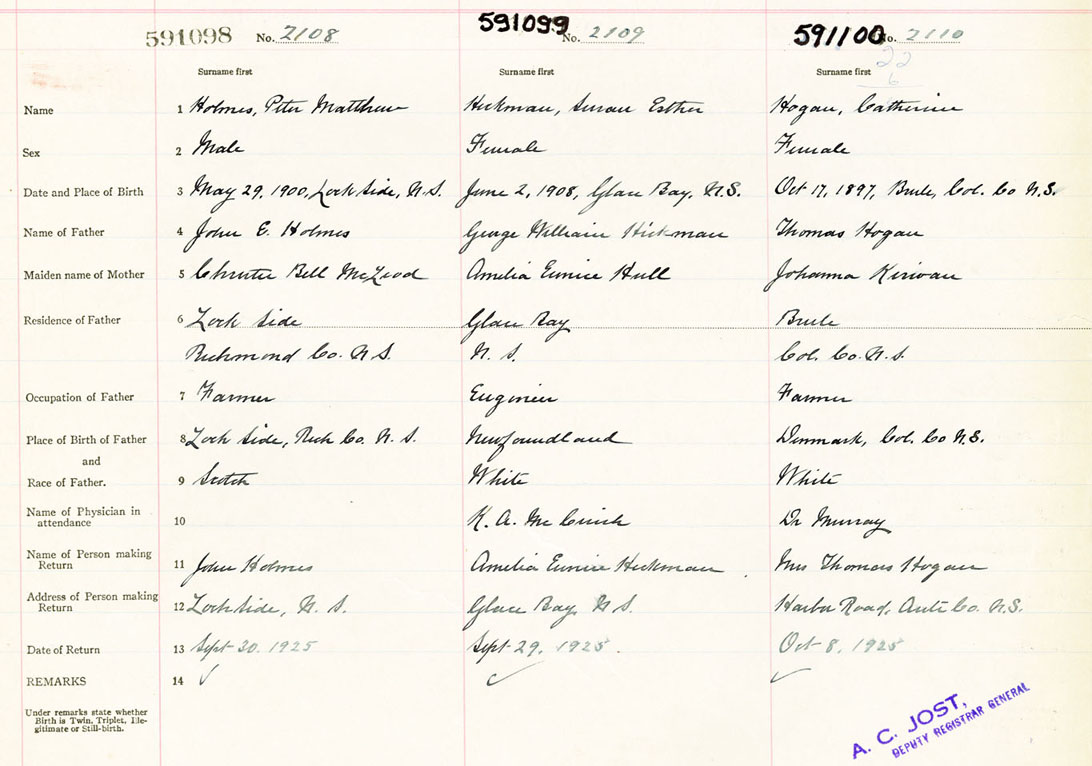 591098 No. 2108 591099 No. 2109 591100 No. 2110
22
6
Surname first Surname first Surname first
Name 1 Holmes, Peter Matthew Hickman, Susan Esther Hogan, Catherine
Sex 2 Male Female Female
Date and Place of Birth 3 May 29, 1900, Loch Side, N.S. June 2, 1908, Glace Bay, N.S. Oct 17, 1897, Brule, Col. Co N.S.
Name of Father 4 John E. Holmes George William Hickman Thomas Hogan
Maiden name of Mother 5 Bell McLeod Amelia Eunice Hull Johanna Kirwan
Residence of Father 6 Loch Side Glace Bay Brule
Richmond Co. N.S. N. S. Col. Co. N.S.
Occupation of Father 7 Farmer Engineer Farmer
Place of Birth of Father 8 Loch Side, Rich Co. N. S. Newfoundland Denmark, Col. Co N.S.
and
Race of Father. 9 Scotch White White
Name of Physician in K. A. Dr Murray
attendance 10
Name of Person making
Return 11 John Holmes Amelia Eunice Hickman Mrs Thomas Hogan
Address of Person making
Return 12 Loch Side, N. S. Glace Bay, N. S. Harbor Road, Co. N.S.
Date of Return 13 Sept 30. 1925 Sept 29, 1925. Oct 8, 1925
REMARKS 14 ✓ ✓ ✓
Under remarks state whether
Birth is Twin, Triplet, Ille-
gitimate or Still-birth.
A. C. JOST,
DEPUTY REGISTRAR GENERAL